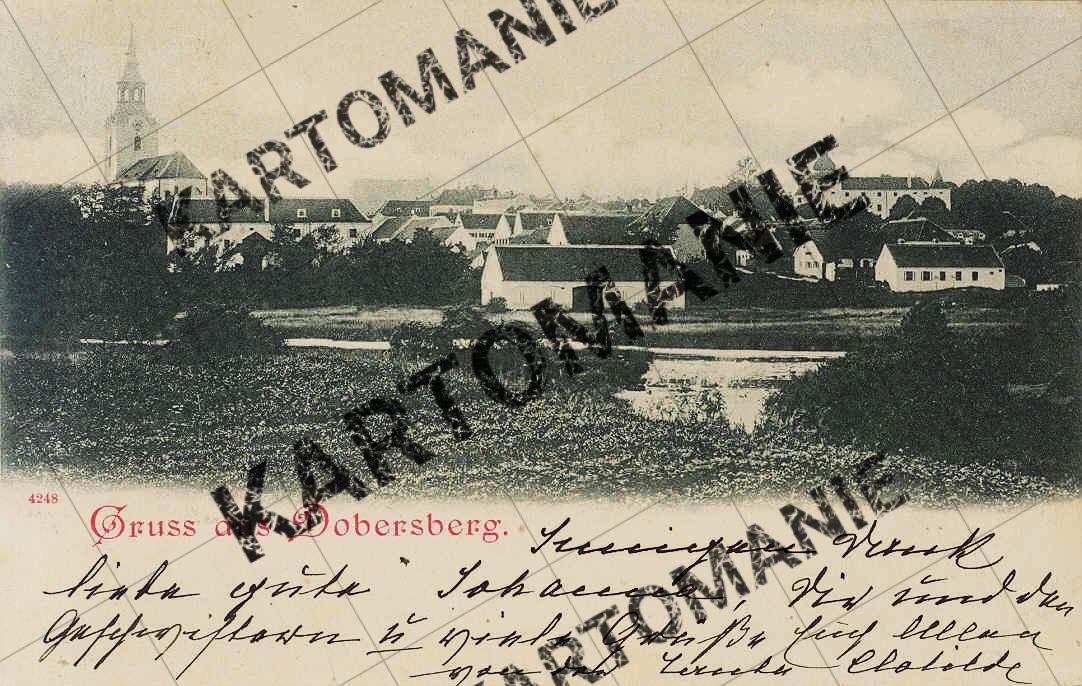 KARTOMANIE
KARTOMANIE
KARTOMANIE
4248
Gruss aus Dobersberg.
Innigen Dank
liebe gute Johanna, Dir und den
Geschwistern u viele Grüße Euch Allen
von der Tante Clotilde